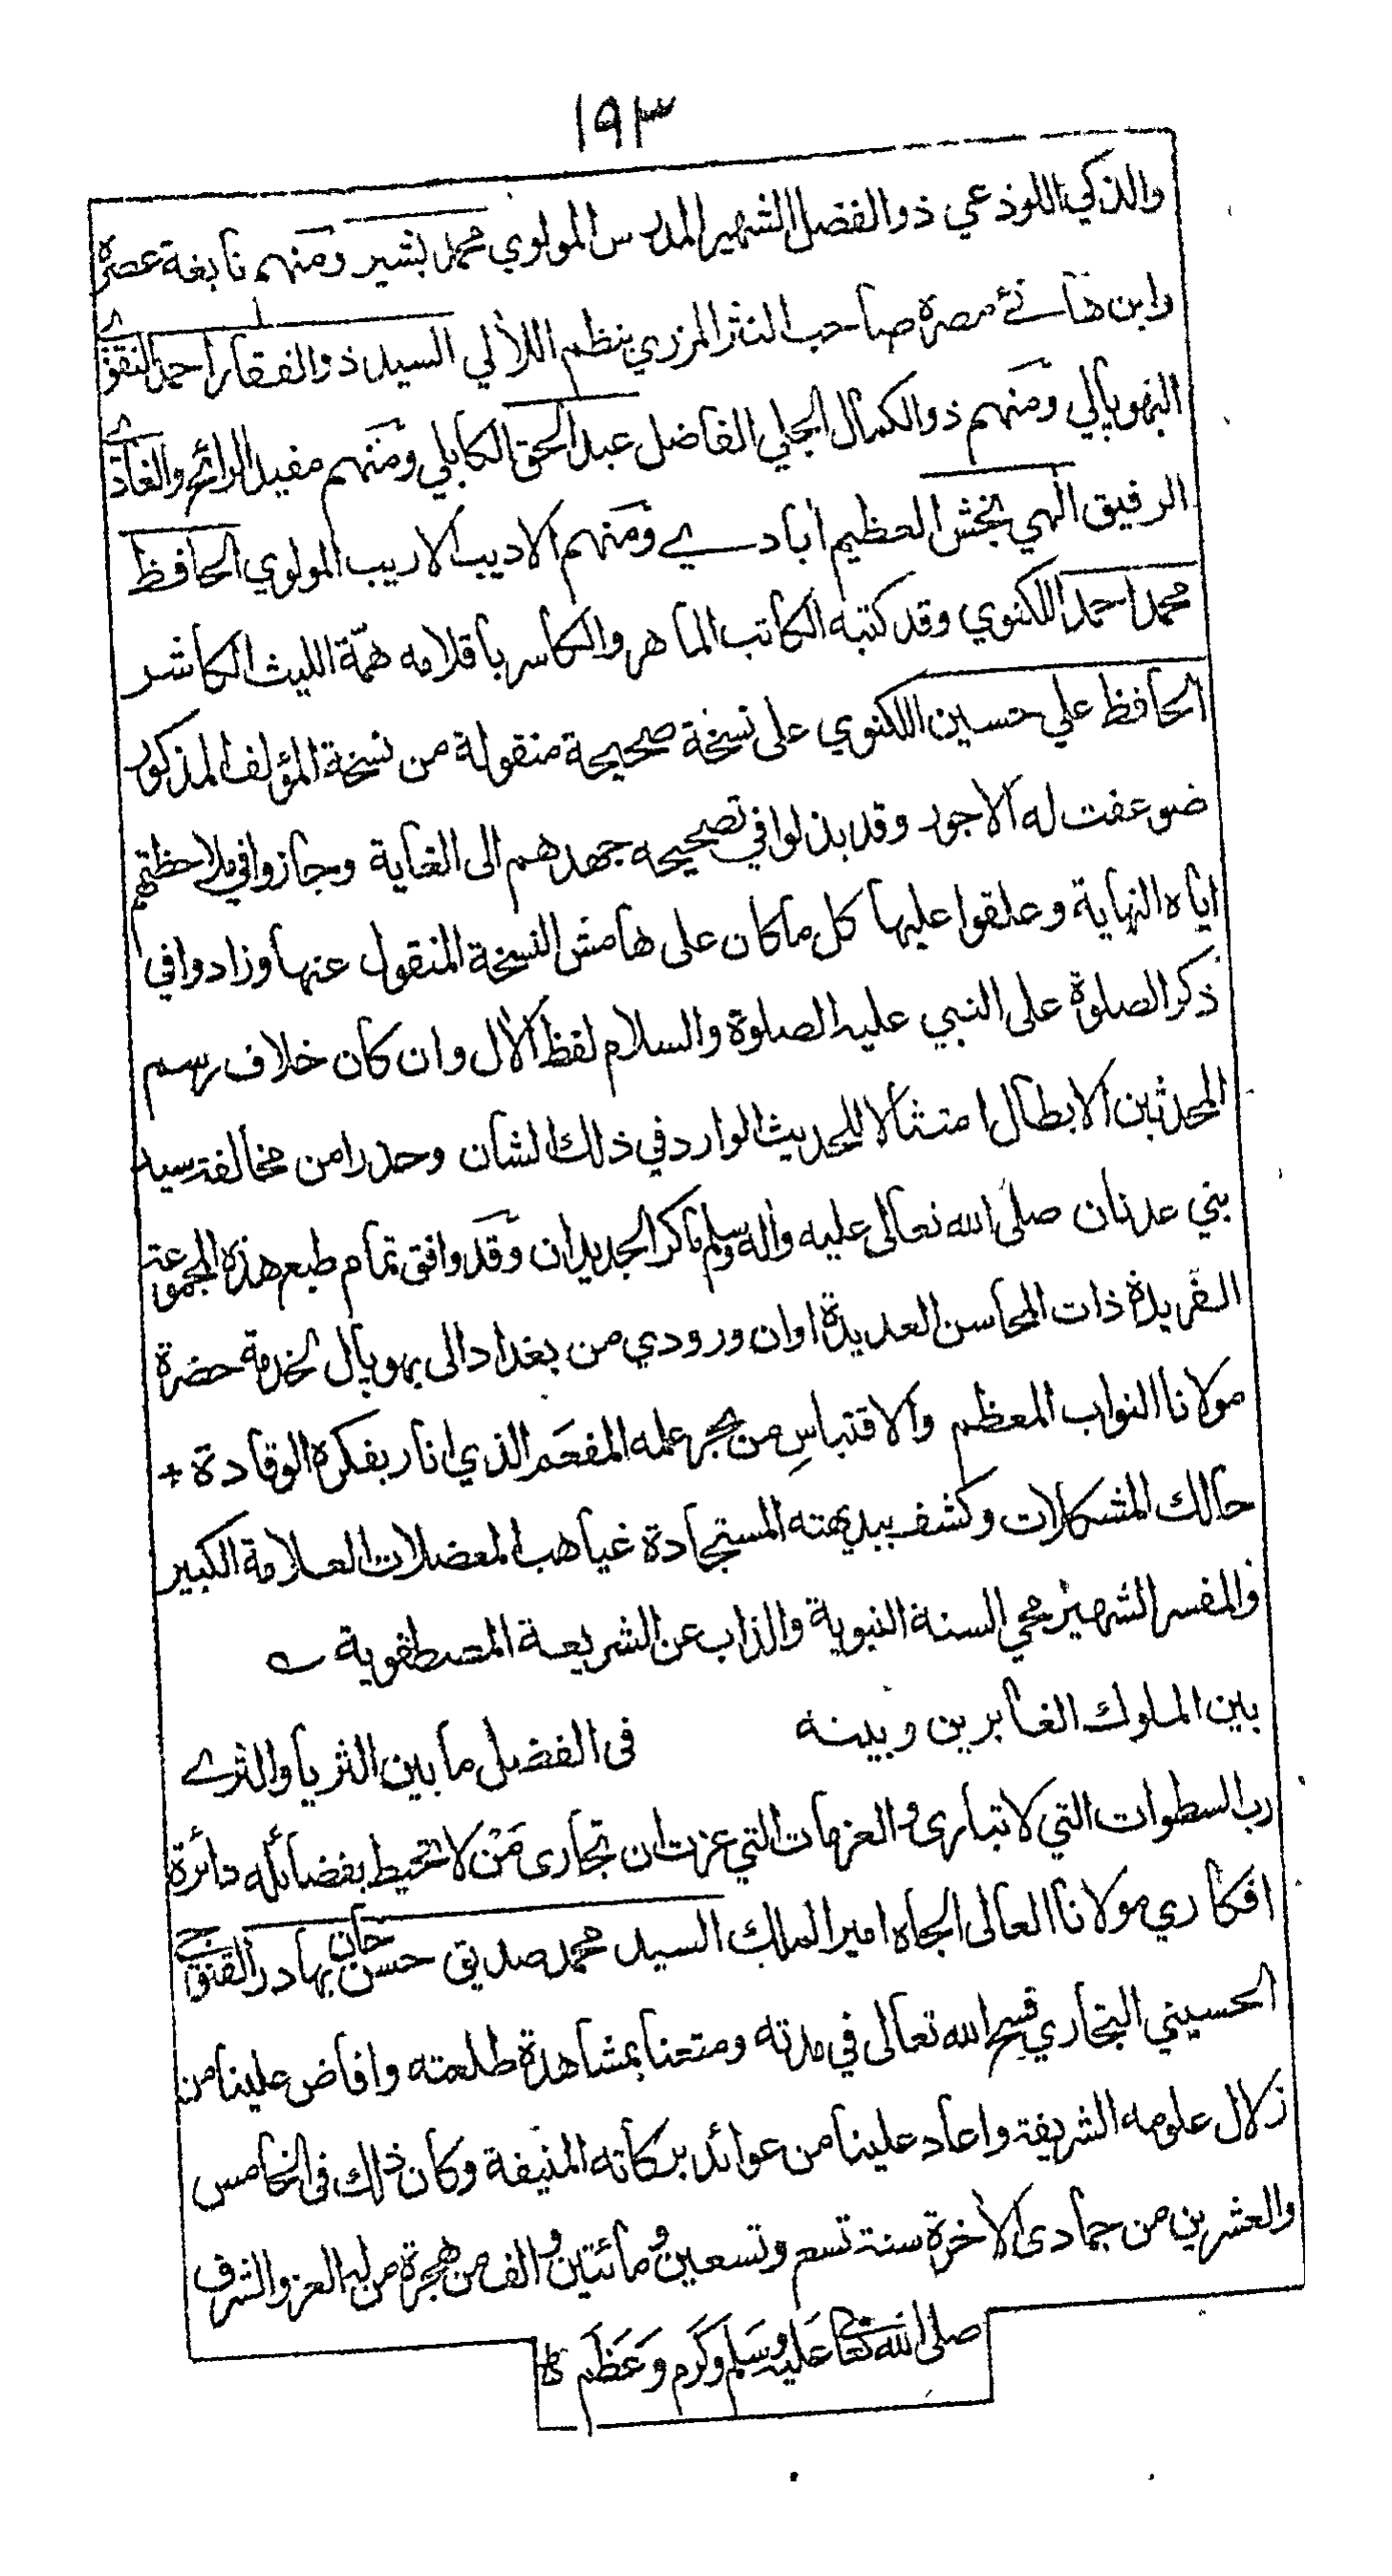 ١٩٣
والذكي اللوذعي ذو الفضل الشهير المدرس المولوي محمد بشير ومنهم نابغة عصره
وابن هانئ مصره صاحب النثر المزري بنظم اللآلي السيد ذو الفقار احمد النقوي
البهوپالي ومنهم ذو الكمال الجلي الفاضل عبد الحق الكابلي ومنهم مفيد الرائح والغادي
الرفيق الهي بخش العظيم ابادي ومنهم الاديب الاريب المولوي الحافظ
محمد احمد اللكنوي وقد كتبه الكاتب الماهر والكاسر باقلامه همّة الليث الكاشر
الحافظ علي حسين اللكنوي على نسخة صحيحة منقولة من نسخة المؤلف المذكور
ضوعفت له الاجور وقد بذلوا في تصحيحه جهدهم الى الغاية وجازوا في ملاحظتهم
اياه النهاية وعلقوا عليها كل ما كان على هامش النسخة المنقول عنها وزادوا في
ذكر الصلوة على النبي عليه الصلوة والسلام لفظ الآل وان كان خلاف رسم
المحدثين الابطال امتثالا للحديث الوارد في ذلك الشان وحذرا من مخالفة سيد
بني عدنان صلى الله تعالى عليه واله وسلم ما كر الجديدان وقد وافق تمام طبع هذه المجموعة
الفريدة ذات المحاسن العديدة اوان ورودي من بغداد الى بهوپال لخدمة حضرة
مولانا النواب المعظم والاقتباسِ من بحر علمه المفعَم الذي انار بفكره الوقادة +
حالك المشكلات وكشف ببديهته المستجادة غياهب المعضلات العلامة الكبير
والمفسر الشهير محي السنة النبوية والذاب عن الشريعة المصطفوية ؎
بين الملوك الغابرين وبينه في الفضل ما بين الثريا والثرى
رب السطوات التي لا تبارى والعزمات التي عزت ان تجارى مَنْ لا تحيط بفضائله دائرة
افكاري مولانا العالى الجاه امير الملك السيد محمد صديق حسن خان بهادر القنوجي
الحسيني البخاري فسح الله تعالى في مدته ومتعنا بمشاهدة طلعته وافاض علينا من
زلال علومه الشريفة واعاد علينا من عوائد بركاته المنيفة وكان ذلك في الخامس
والعشرين من جمادى الاخرة سنة تسع وتسعين ومائتين والف من هجرة من له العز والشرف
صلى الله تعالى عليه وسلم وكرم وعظم